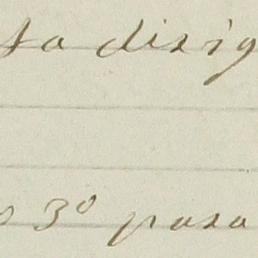 ta dirig
s 3º para